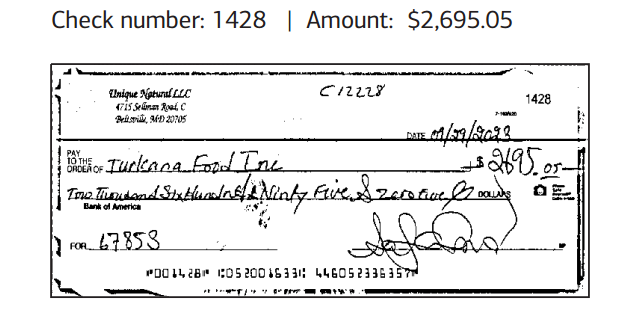 Check number: 1428 | Amount: $2,695.05
Unique Natural LLC C12228 1428
4715 Sellman Road, C
Beltsville, MD 20705
DATE 09/29/2023
PAY
TO THE
ORDER OF Turkana Food Inc $ 2695.05
Two Thousand Six Hundred & Ninty Five & zero five DOLLARS
Bank of America
FOR 67853
⑈001428⑈ ⑆052001633⑆ 446052336357⑈